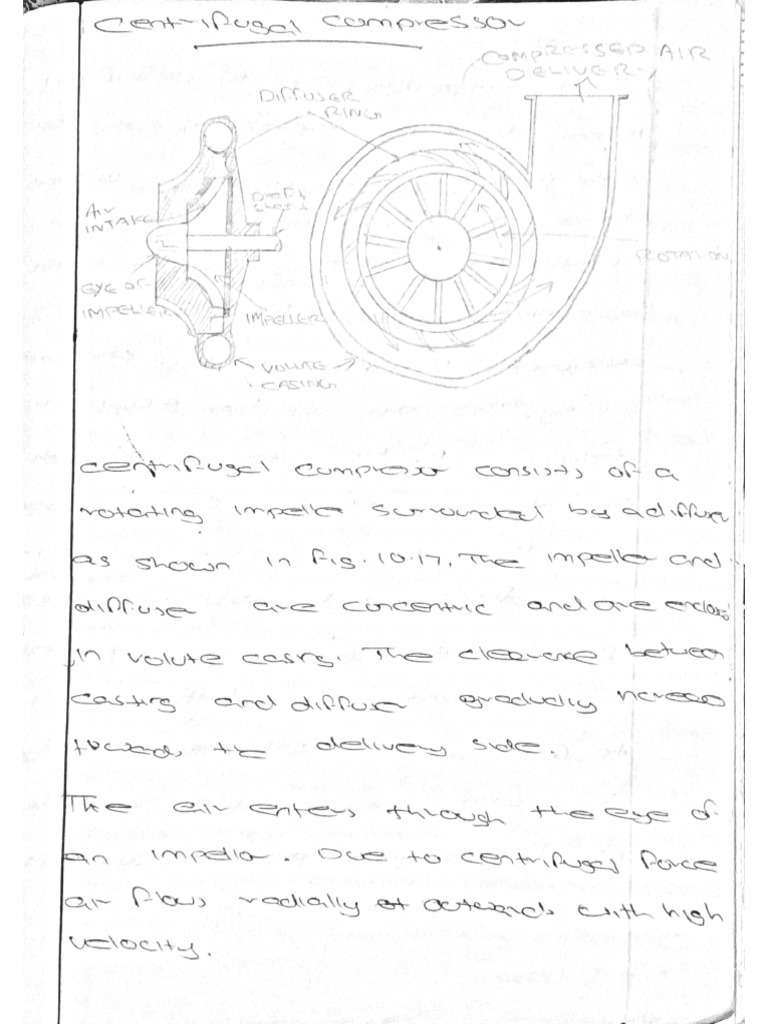 Centrifugal Compressor
COMPRESSED AIR
DELIVERY
DIFFUSER
RING
AIR
INTAKE
EYE OF
IMPELLER
IMPELLER
VOLUTE
CASING
ROTATION
Centrifugal compressor consists of a
rotating impeller surrounded by a diffuser
as shown in fig. 10.17. The impeller and
diffuser are concentric and are enclosed
in volute casing. The clearance between
casting and diffuser gradually increase
towards the delivery side.
The air enters through the eye of
an impeller. Due to centrifugal force
air flows radially outwards with high
velocity.